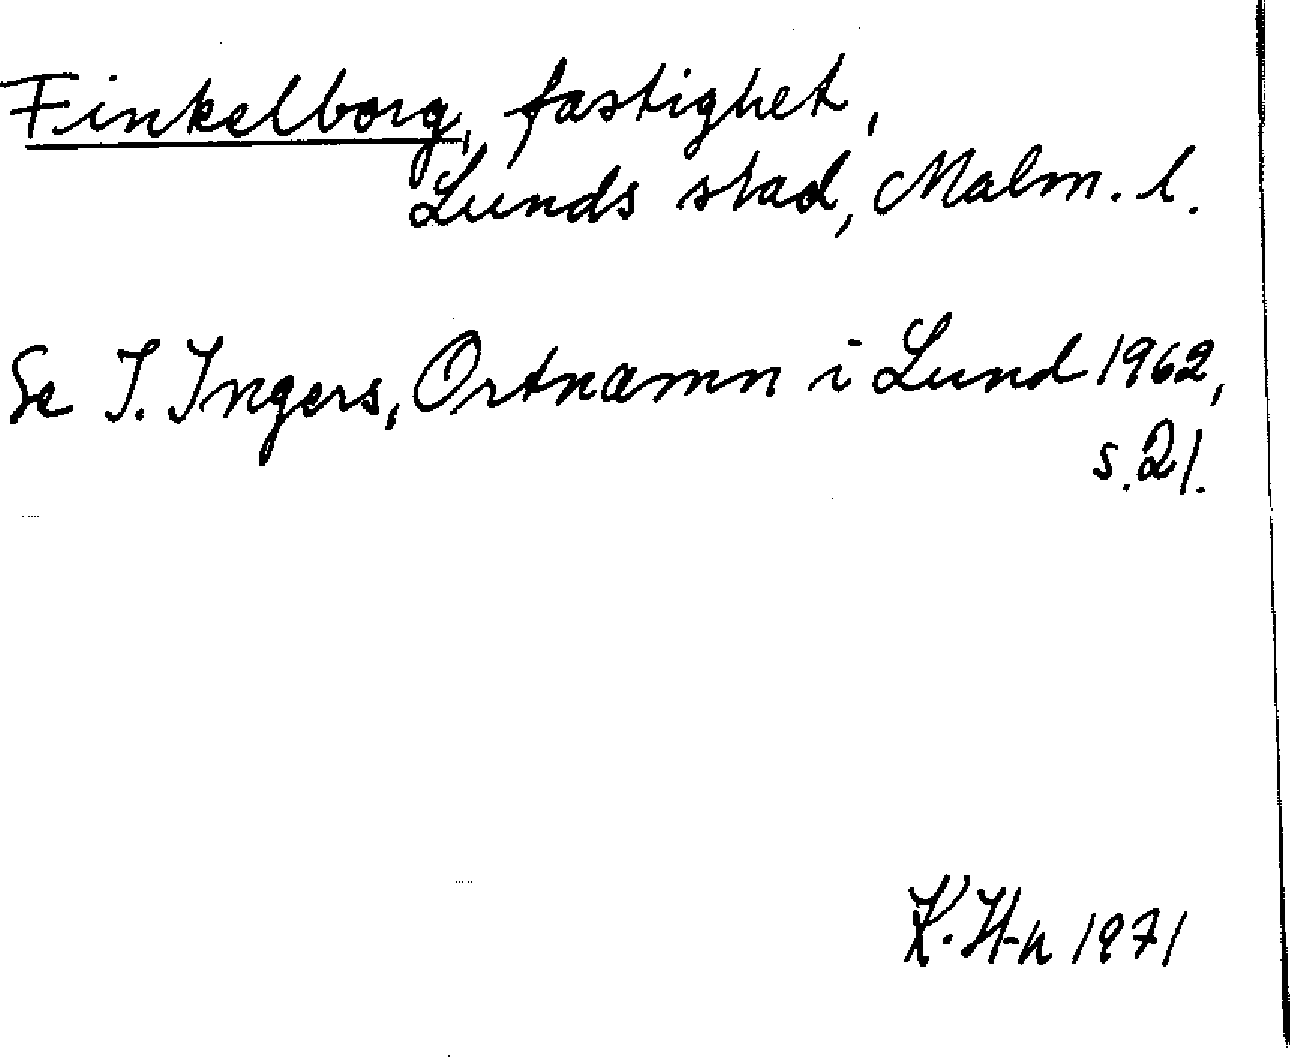 Finkelborg, fastighet,
Lunds stad, Malm. l.
Se I. Ingers, Ortnamn i Lund 1962,
s. 21.
K. H-n 1971